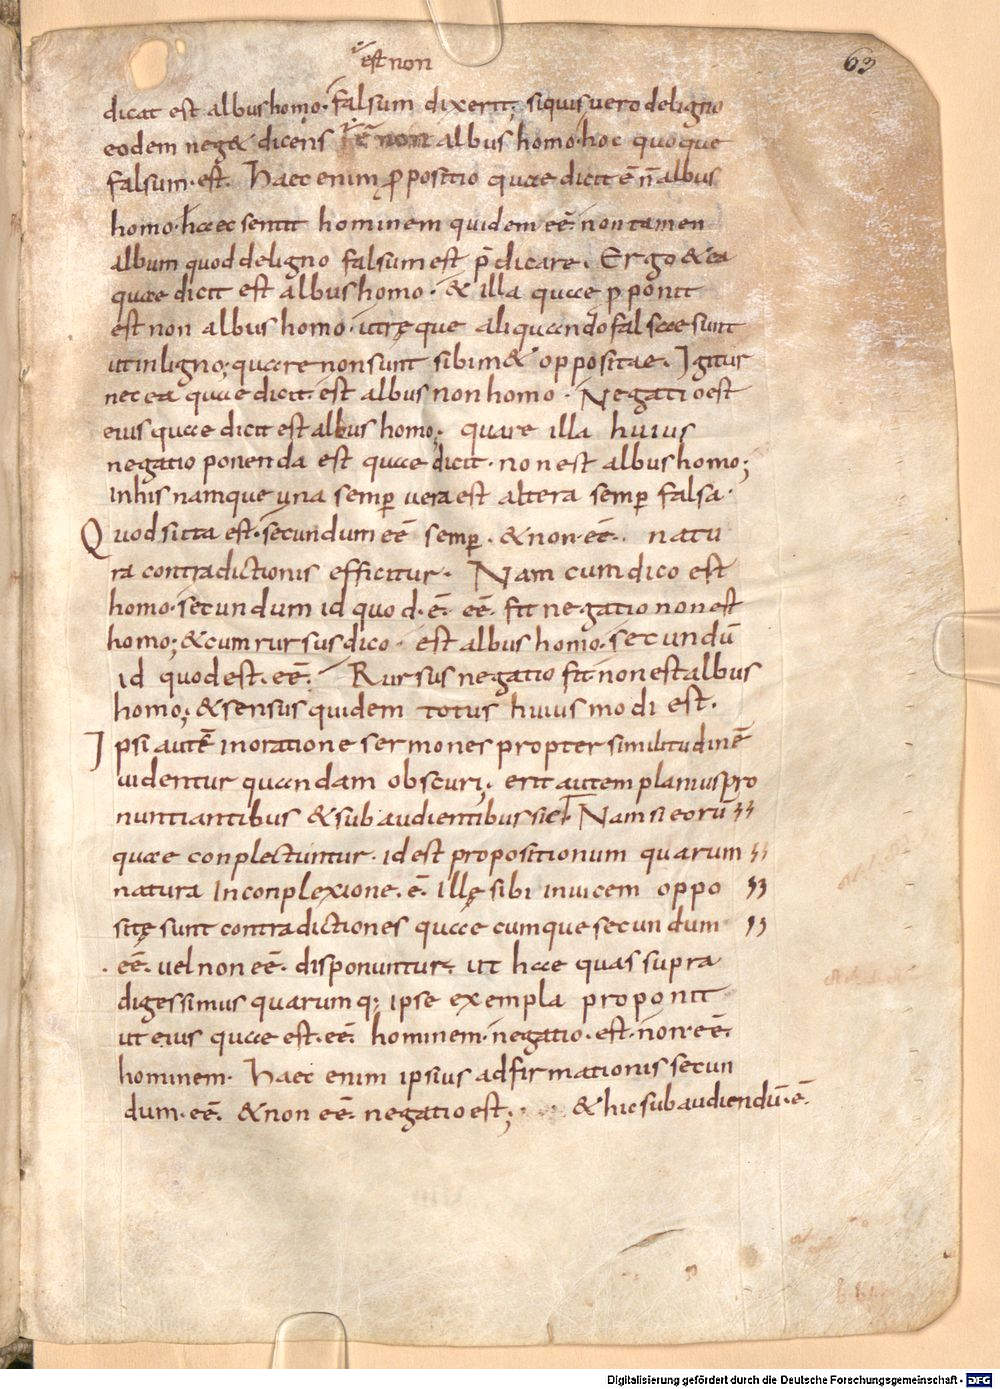 est non
63
dicat est albus homo· falsum dixerit; siquis uero de ligno
eodem neg& dicens ē non albus homo· hoc quoque
falsum·est. Haec enim ꝓpositio quae dicit ē n̄ albus
homo· haec sentit hominem quidem eē· non tamen
album quod de ligno falsum est p̄dicare. Ergo & ea
quae dicit est albus homo· & illa quae ꝓponit
est non albus homo· utręque aliquando falsae sunt
ut in ligno; quare non sunt sibim& oppositae. Igitur
nec ea quae dicit· est albus non homo· Negatio est
eius quae dicit est albus homo; quare illa huius
negatio ponenda est quae dicit· non est albus homo;
In his namque una semꝑ uera est altera semꝑ falsa·
Quod si ita est· secundum eē semꝑ· & non·eē·. natu
ra contradictionis efficitur· Nam cum dico est
homo· secundum id quod·ē· eē· fit negatio non est
homo; & cum rursus dico· est albus homo· secundū
id quod est·eē· Rursus negatio fit· non est albus
homo; & sensus quidem totus huiusmodi est·
Ipsi autē in oratione sermones propter similitudinē
uidentur quandam obscuri; erit autem planius pro
nuntiantibus & subaudientibus sic· Nam si eorū
quae conplectuntur· id est propositionum quarum
natura In conplexione·ē· Illę sibi inuicem oppo
sitę sunt contradictiones quaecumque secundum
eē· uel non eē· disponuntur; ut hae quas supra
digessimus quarumq; ipse exempla proponit
ut eius quae est·eē· hominem· negatio·est·non·eē·
hominem· Haec enim ipsius adfirmationis secun
dum·eē· & non eē· negatio est; & hic subaudiendū·ē·
Digitalisierung gefördert durch die Deutsche Forschungsgemeinschaft - DFG